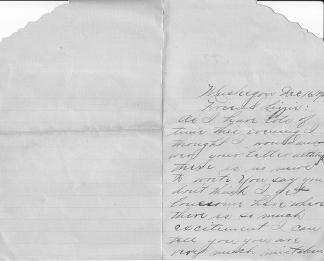 Muskegon Dec 16
Friend Lizzie:
As I have lots of
time this evening I
thought I would ans
wer your letter
there is no more
to write You say you
dont think I get
lonesome here where
there is so much
excitement I can
tell you you are
very much mistaken